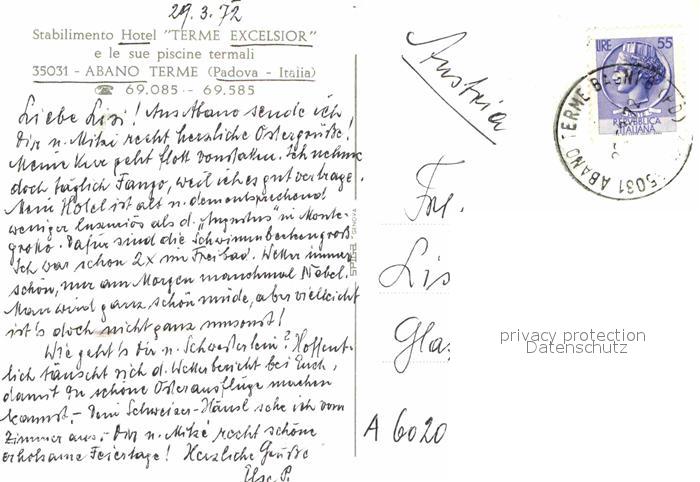 29.3.72
Stabilimento Hotel "TERME EXCELSIOR"
e le sue piscine termali
35031 - ABANO TERME (Padova - Italia)
☎ 69.085 - 69.585
Liebe Lisi! Aus Abano sende ich
Dir u. Mitzi recht herzliche Ostergrüße!
Meine Kur geht flott vonstatten. Ich nehme
doch täglich Fango, weil ich es gut vertrage.
Mein Hotel ist alt u. dementsprechend
weniger luxuriös als d. „Augustus" in Monte-
grotto. Dafür sind die Schwimmbecken groß.
Ich war schon 2x im Freibad. Wetter immer
schön, nur am Morgen manchmal Nebel.
Man wird ganz schön müde, aber vielleicht
ist's doch nicht ganz umsonst!
Wie geht's Dir u. Schwesterlein? Hoffent-
lich täuscht sich d. Wetterbericht bei Euch,
damit Du schöne Osterausflüge machen
kannst. - Dein Schweizer-Häusl sehe ich vom
Zimmer aus. - Dir u. Mitzi recht schöne
erholsame Feiertage! Herzliche Grüße
Ilse P.
SPIGA - GENOVA
Austria
Frl.
Lis
Gla
A 6020
LIRE 55
REPUBBLICA
ITALIANA
35031 ABANO TERME-BAGNI (PD)
privacy protection
Datenschutz